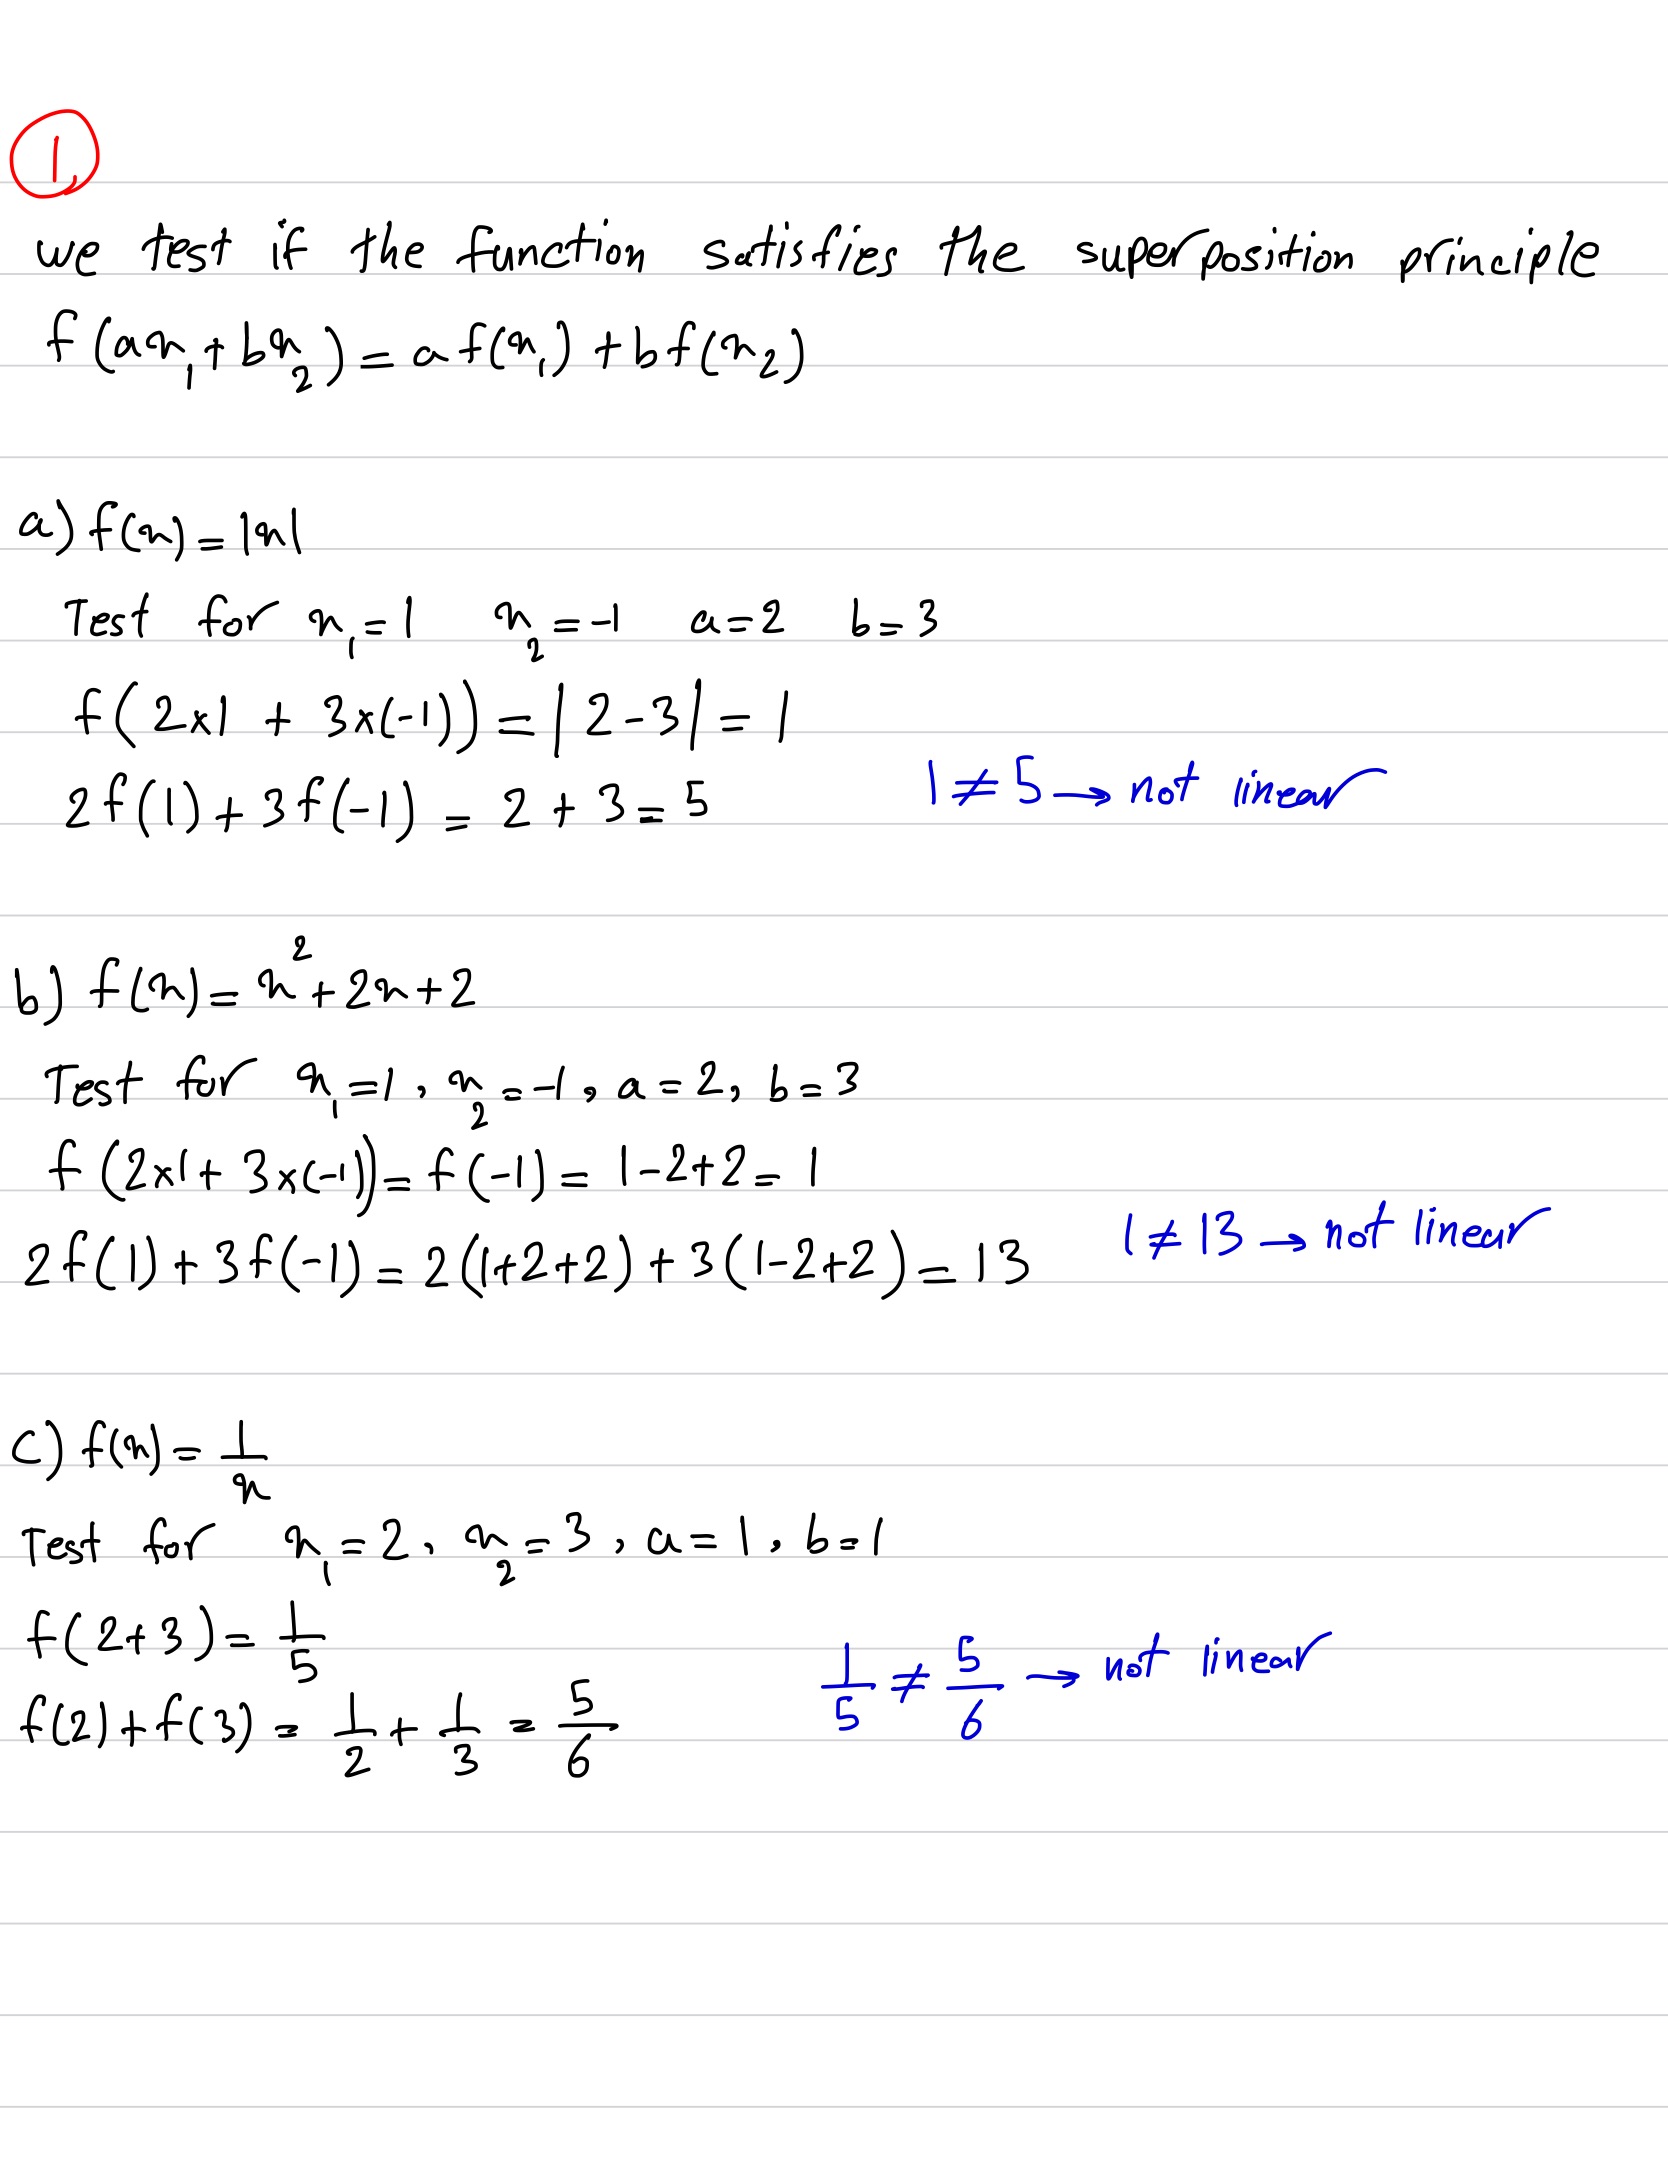 1
we test if the function satisfies the superposition principle
f(ax₁+bx₂) = a f(x₁) + b f(x₂)
a) f(x) = |x|
Test for x₁ = 1 x₂ = -1 a = 2 b = 3
f(2×1 + 3×(-1)) = |2-3| = 1
2f(1) + 3f(-1) = 2 + 3 = 5 1 ≠ 5 → not linear
b) f(x) = x² + 2x + 2
Test for x₁ = 1, x₂ = -1, a = 2, b = 3
f(2×1 + 3×(-1)) = f(-1) = 1-2+2 = 1
2f(1) + 3f(-1) = 2(1+2+2) + 3(1-2+2) = 13 1 ≠ 13 → not linear
c) f(x) = 1/x
Test for x₁ = 2, x₂ = 3, a = 1, b = 1
f(2+3) = 1/5
f(2) + f(3) = 1/2 + 1/3 = 5/6 1/5 ≠ 5/6 → not linear